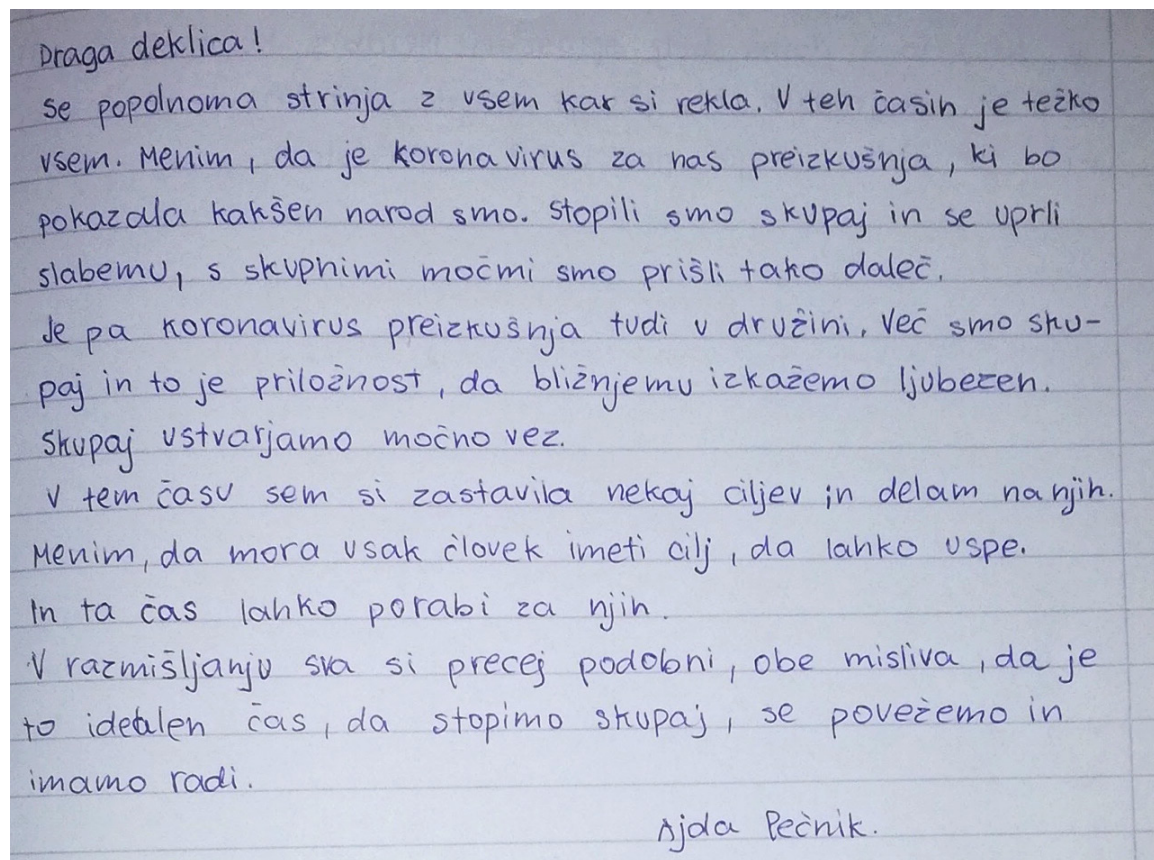 Draga deklica!
se popolnoma strinja z vsem kar si rekla. V teh časih je težko
vsem. Menim, da je koronavirus za nas preizkušnja, ki bo
pokazala kakšen narod smo. Stopili smo skupaj in se uprli
slabemu, s skupnimi močmi smo prišli tako daleč.
Je pa koronavirus preizkušnja tudi v družini. Več smo sku-
paj in to je priložnost, da bližnjemu izkažemo ljubezen.
Skupaj ustvarjamo močno vez.
V tem času sem si zastavila nekaj ciljev in delam na njih.
Menim, da mora vsak človek imeti cilj, da lahko uspe.
In ta čas lahko porabi za njih.
V razmišljanju sva si precej podobni, obe misliva, da je
to idealen čas, da stopimo skupaj, se povežemo in
imamo radi.
Ajda Pečnik.